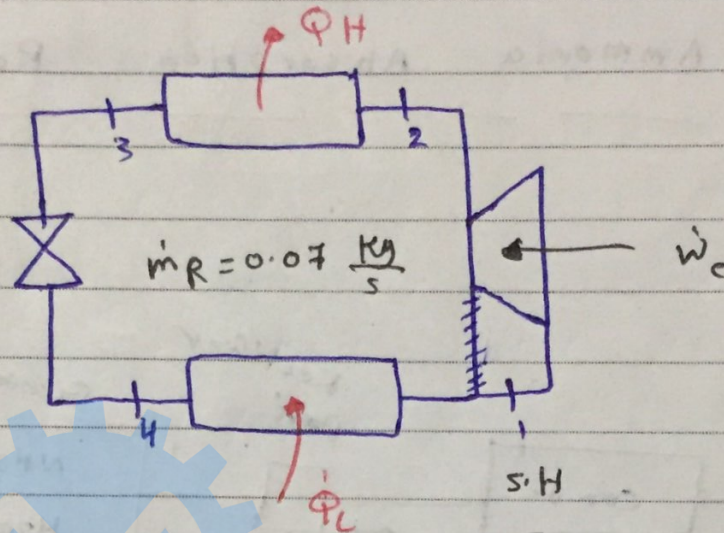 Q̇H
3
2
ṁR = 0.07 Kg/s
Ẇc
4
1
S.H
Q̇L